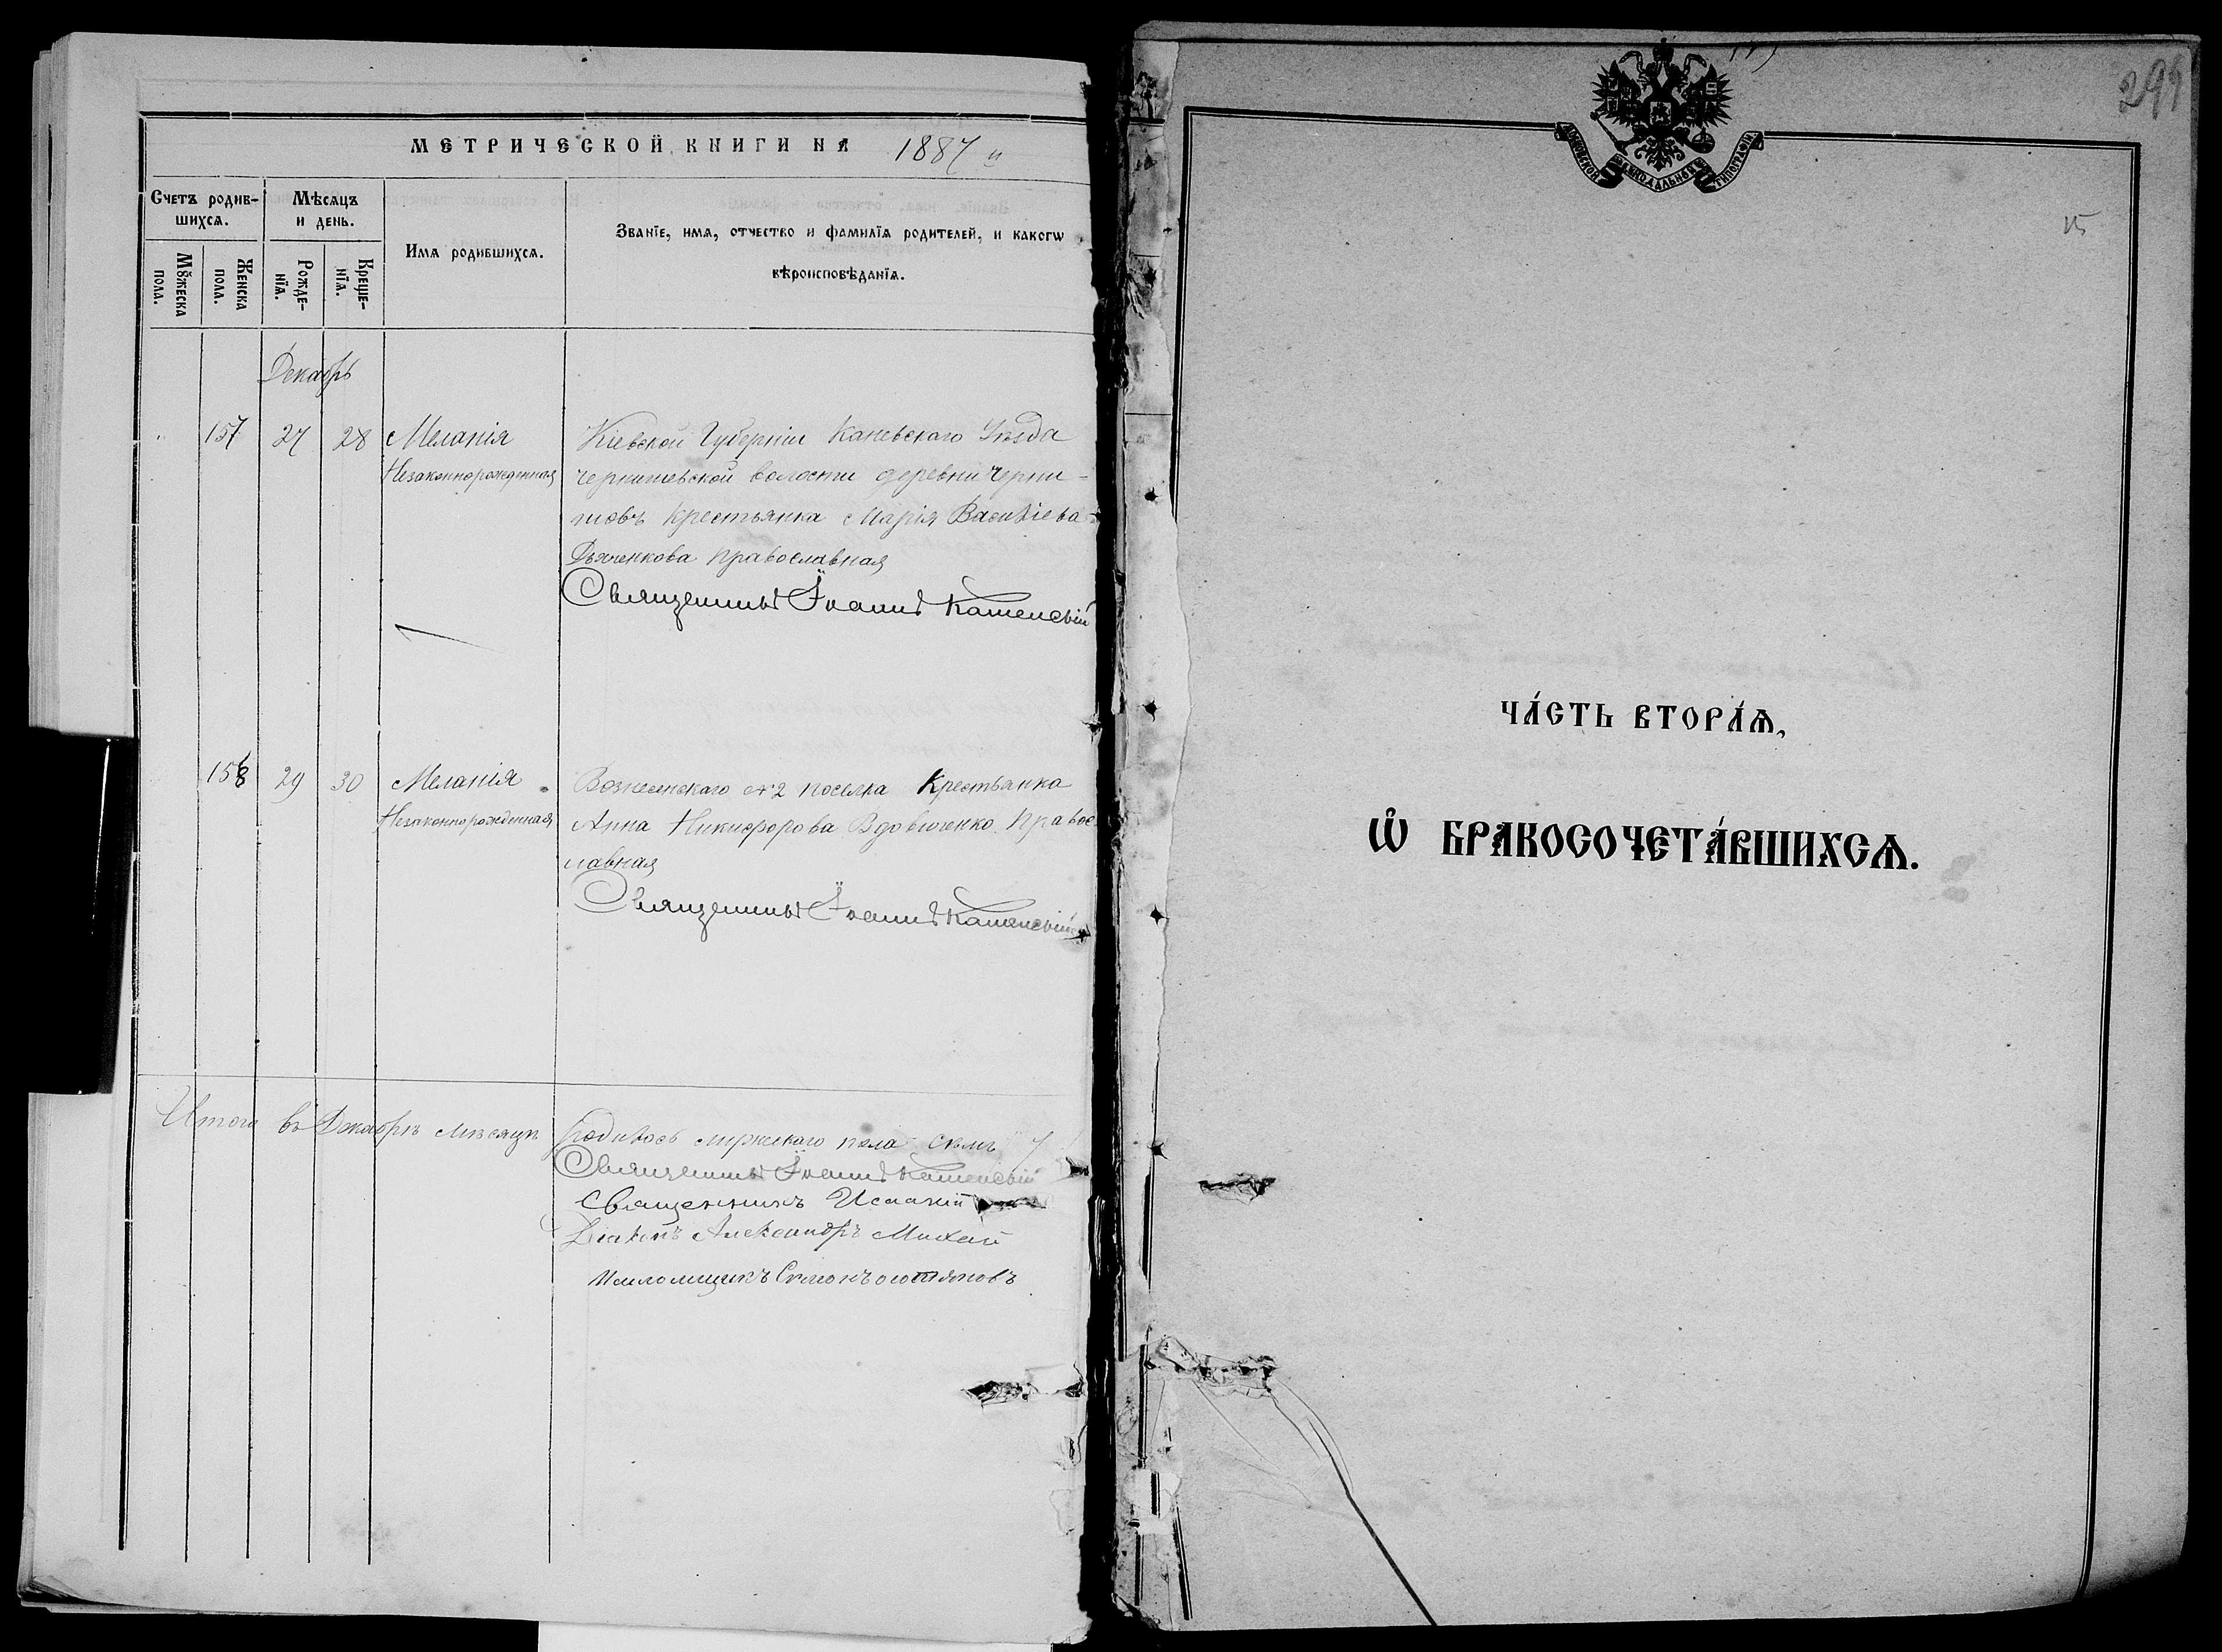 МЕТРИЧЕСКОЙ КНИГИ НА 1887 г
Счетъ родив-
шихся.
Мѣсяцъ
и день.
Имя родившихся.
Званїе, имя, отчество и фамилїя родителей, и какогѡ
вѣроисповѣданїя.
Мꙋжеска
пола.
Женска
пола.
Рожде-
нїя.
Креще-
нїя.
Декабрь
157 27 28 Меланія Кіевской Губерніи Каневскаго Уѣзда
Незаконнорожденная волости деревни Черни-
шовъ Крестьянка Марія Василіева
Дьяченкова православная
Священникъ Іоаннъ Каменскій
158 29 30 Меланія Вознесенскаго №2 поселка Крестьянка
Незаконнорожденная Анна Никифорова Вдовиченко Правос
лавная
Священникъ Іоаннъ Каменскій
Итого въ Декабрѣ мѣсяцѣ родилось мужескаго пола семь 7
Священникъ Іоаннъ Каменскій
Священникъ Исаакій
Діаконъ Александръ Михай
Псаломщикъ
МОСКОВСКОЙ СѴНОДАЛЬНОЙ ТИПОГРАФІИ
299
15
ЧА́СТЬ ВТОРА́Ѧ,
Ѡ҆ БРАКОСОЧЕТА́ВШИХСѦ.